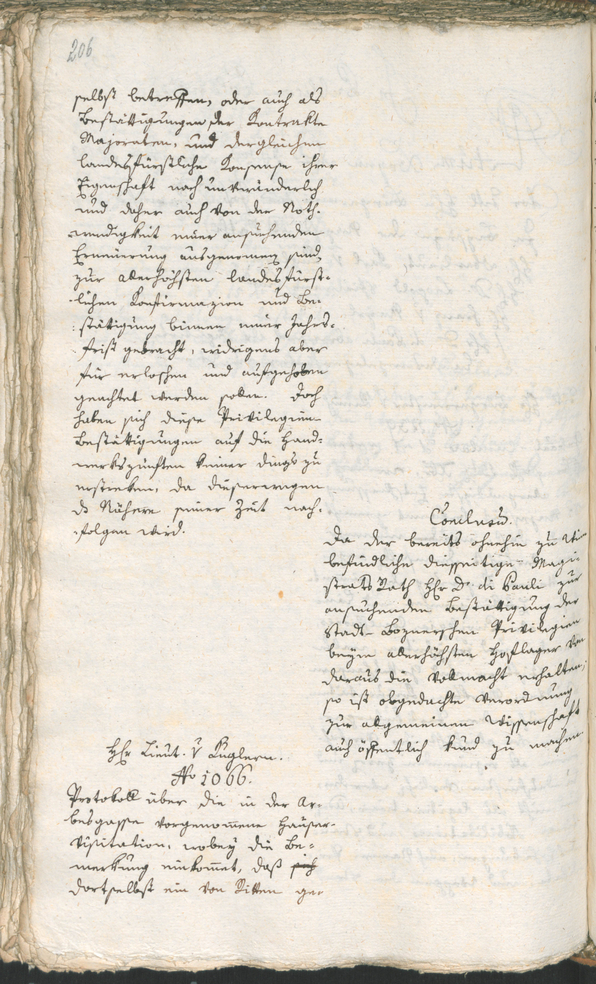 206
selbst betreffen, oder auch als
Bestättigungen der Kontrakte
Majoraten, und dergleichen
landesfürstliche Konsense ihrer
Eigenschaft nach unveränderlich
und daher auch von der Noth-
wendigkeit einer ansuchenden
Erneuerung ausgenommen sind,
zur allerhöchsten landesfürst-
lichen Konfirmazion und Be-
stättigung binnen einer Jahrs-
frist gebracht, widrigens aber
für erloschen und aufgehoben
geachtet werden sollen. Doch
haben sich diese Privilegien
Bestättigungen auf die Hand-
werkszünften keiner dings zu
erstreken, da diesenwegen
ds Nähere seiner Zeit nach-
folgen wird.
Conclusum.
Da der bereits ohnehin zu
befindliche diesseitige Magi-
strats Rath Hr D. di Pauli zur
ansuchenden Bestättigung der
Stadt-Boznerschen Privilegien
beym allerhöchsten Hoflager von
daraus die Vollmacht erhalten,
so ist obgedachte Verordnung
zur allgemeinen Wissenschaft
auch öffentlich kund zu machen.
Hr Lieut. v Kuglern.
No 1066.
Protokoll über die in der Ar-
besgasse vorgenommene Häuser-
Visitation, wobey die Be-
merkung einkommt, daß sich
dortselbst ein von Ritten ge-